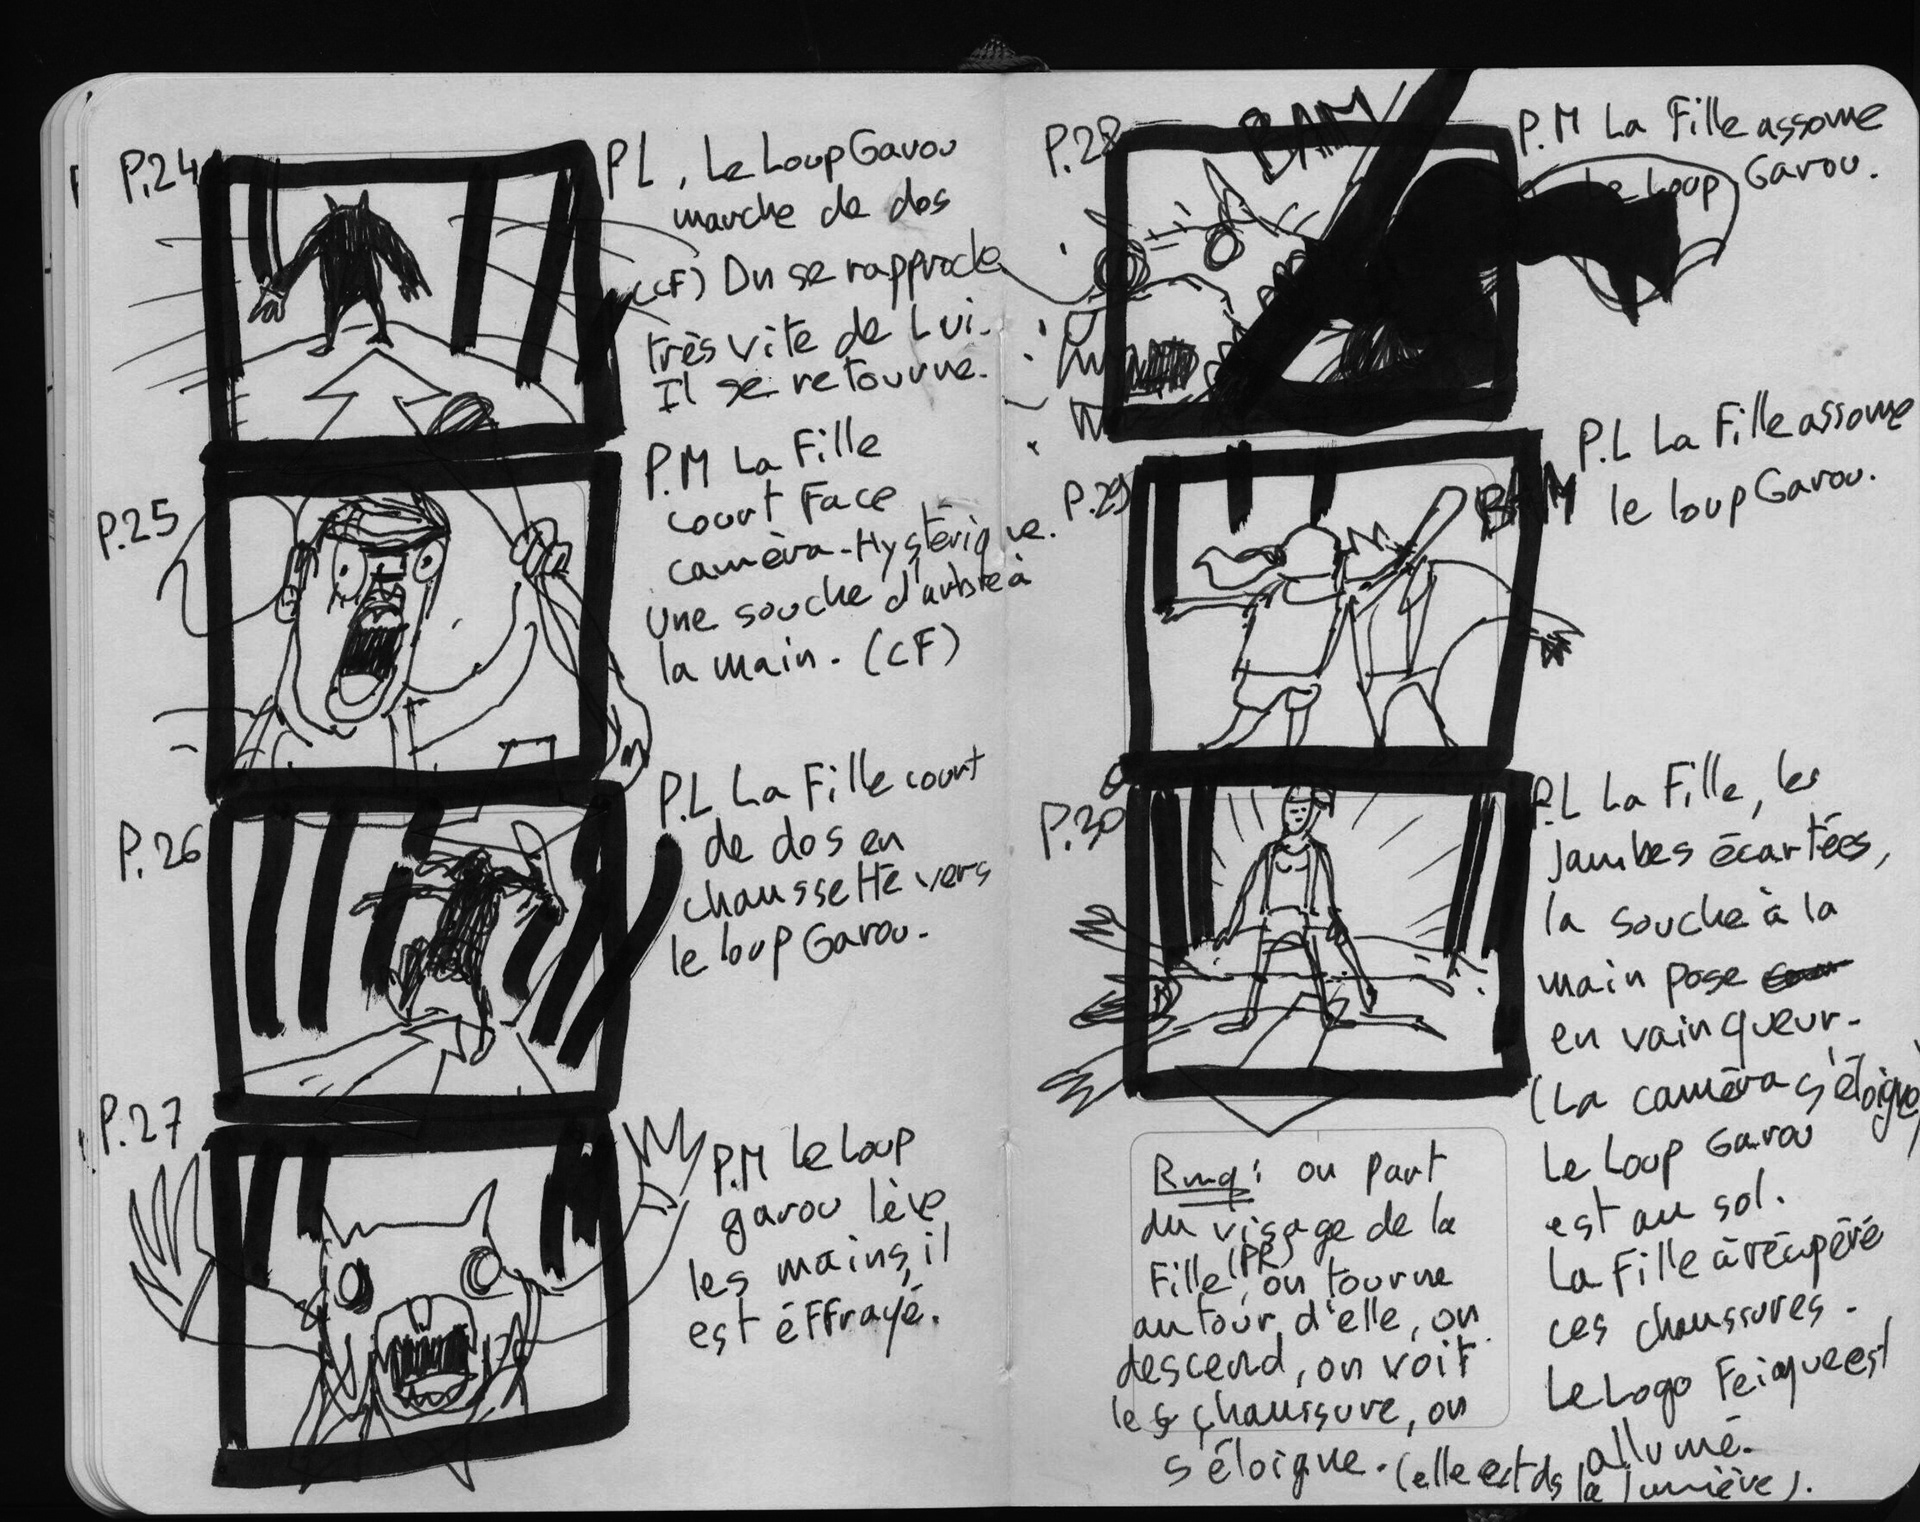 P.24
PL, Le Loup Garou
marche de dos
(CF) On se rapproche
très vite de Lui.
Il se retourne.
P.25
P.M La Fille
court Face
camèra-Hystérique.
une souche d'arbre à
la main. (CF)
P.26
P.L La Fille court
de dos en
chaussette vers
le loup Garou.
P.27
P.M Le Loup
garou lève
les mains, il
est éffrayé.
P.28
BAM
P.M La Fille assome
Le Loup Garou.
P.29
BAM
P.L La Fille assome
le loup Garou.
P.30
P.L La Fille, les
jambes écartées,
la souche à la
main pose
en vainqueur.
(La camèra s'éloigne)
Le Loup Garou
est au sol.
La Fille à récupéré
ces chaussures.
Le Logo Feiyue est
allumé.
Rmq: on part
du visage de la
Fille (PR), on tourne
autour d'elle, on
descend, on voit
les chaussure, on
s'éloigne. (elle est ds la lumière).